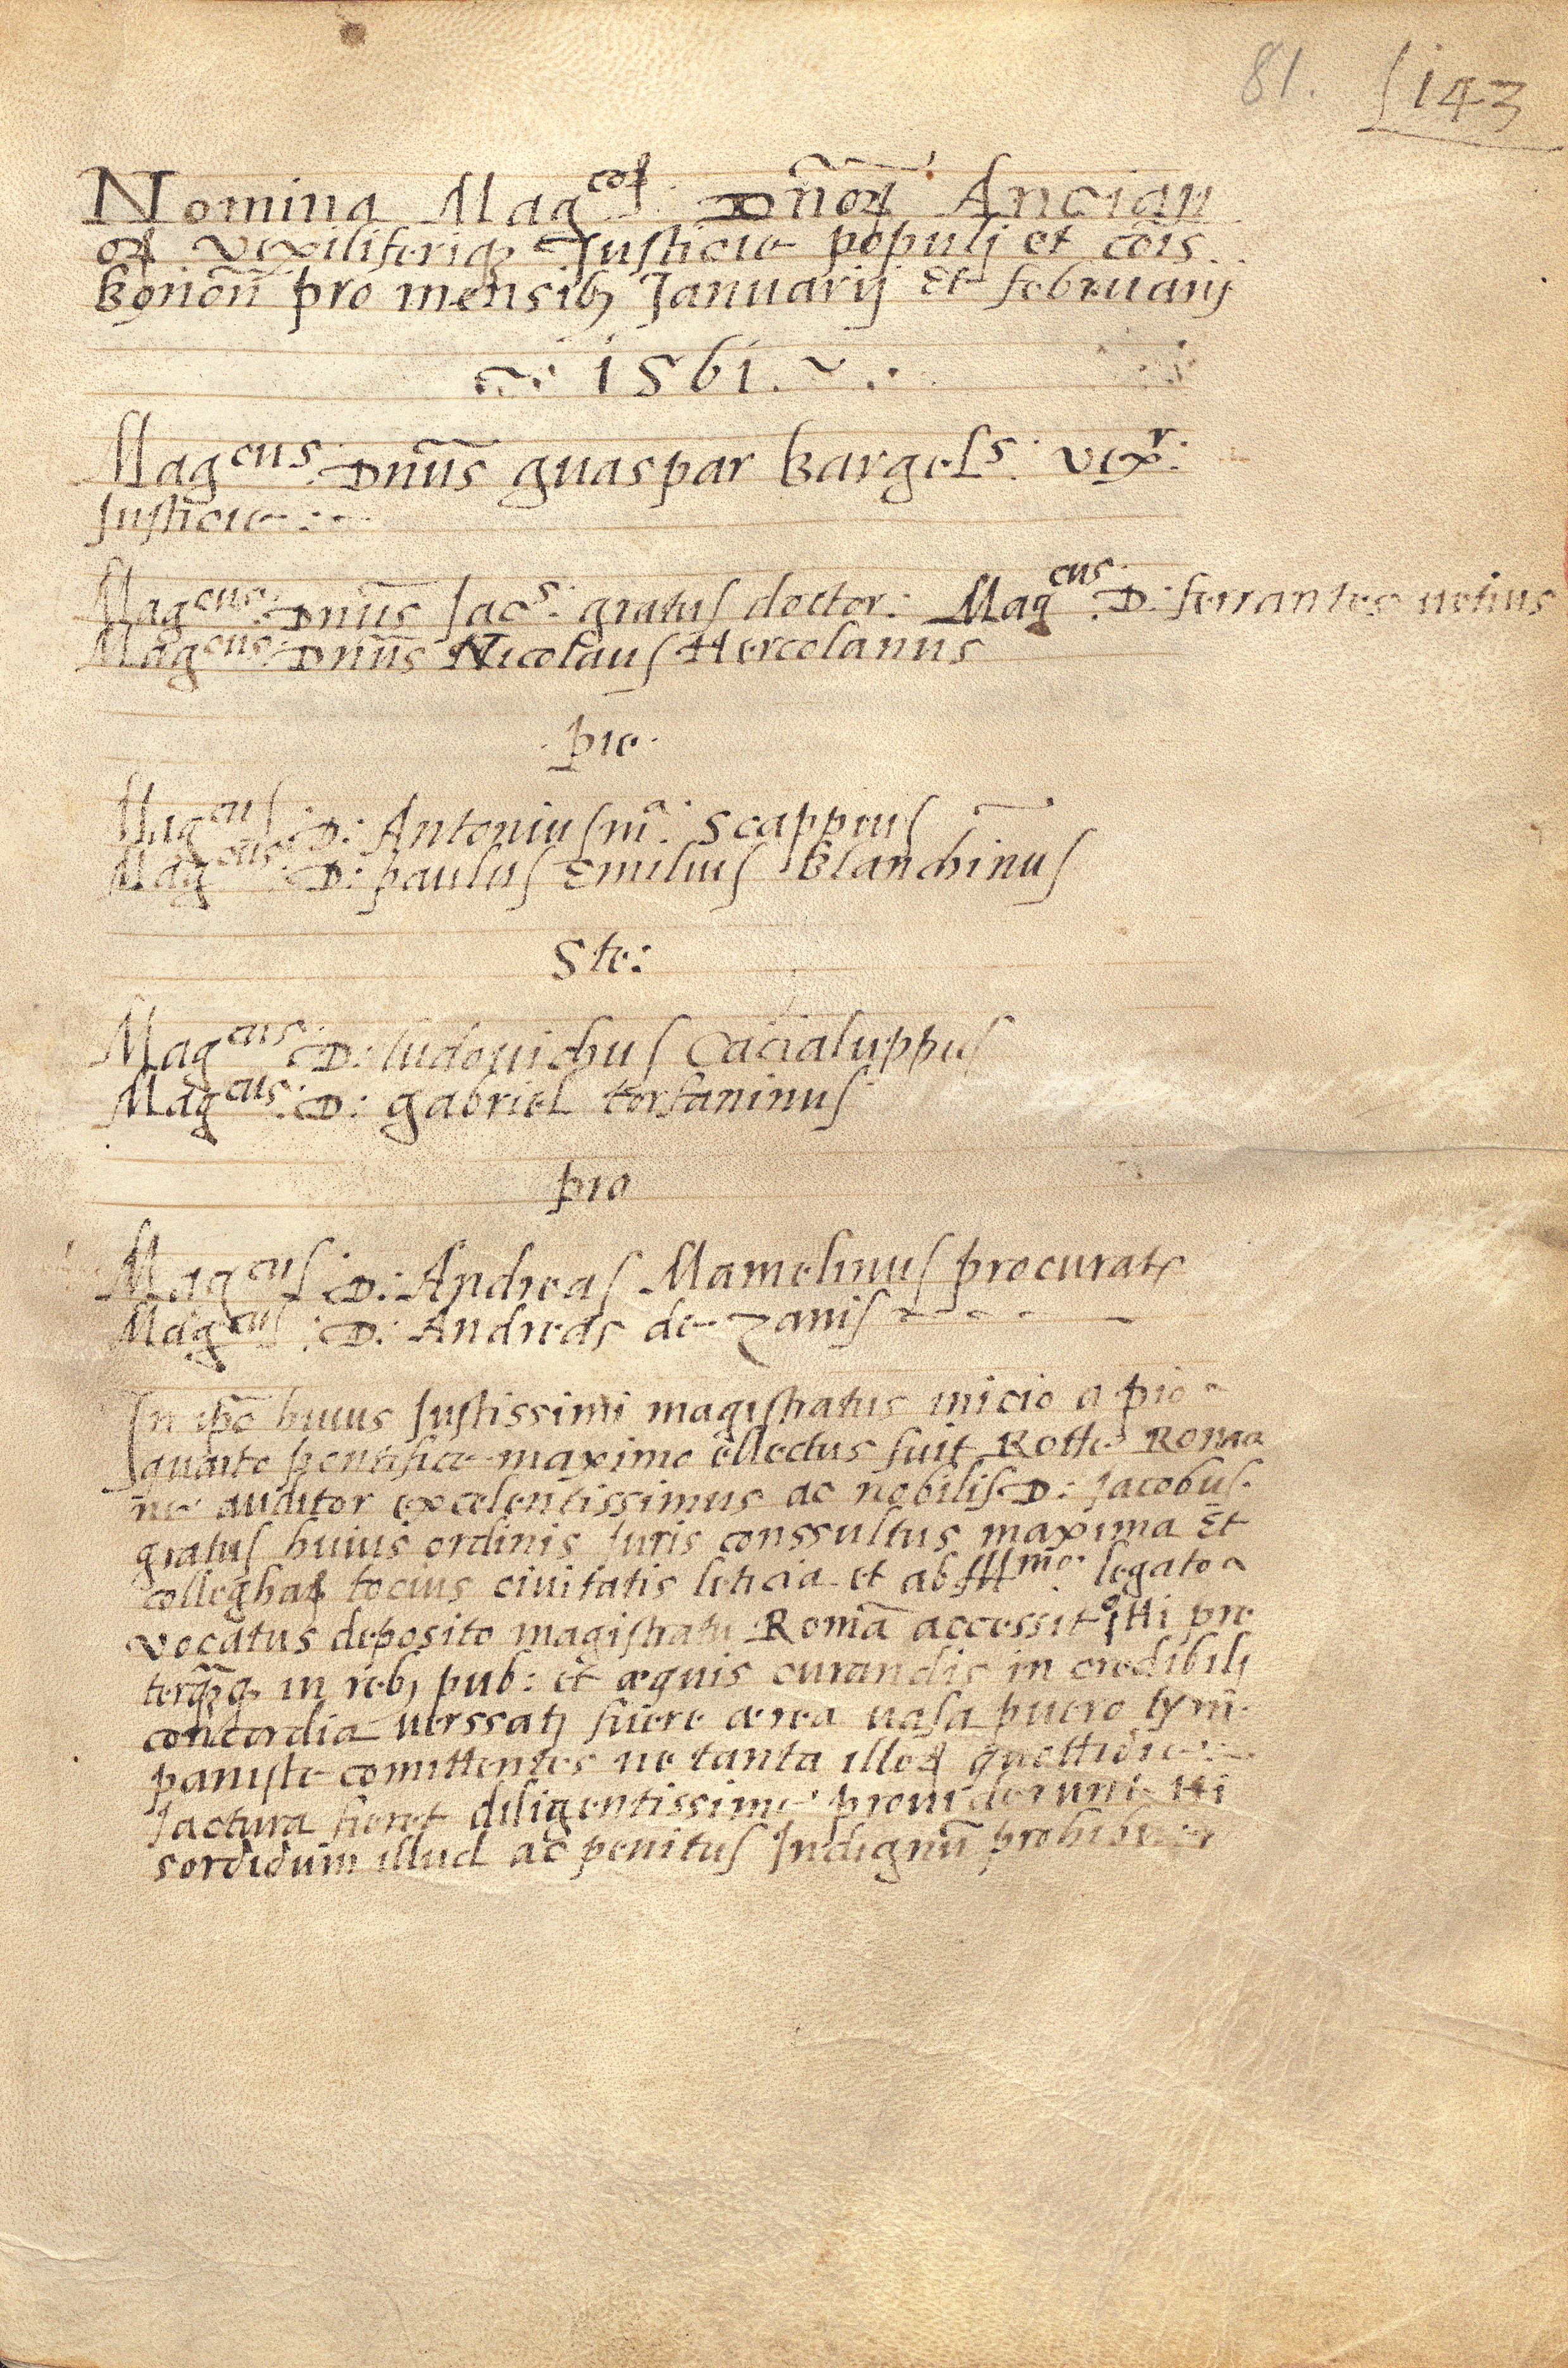 81. 143
Nomina Mag^coꝝ Dñoꝝ Ancian
oꝝ vexiliferiqꝫ Justicie populj et cõis
Bonoñ pro mensibꝫ Januarij Et februarij
1561.
Mag^cus: Dnũs guaspar Bargel^s: vex^r:
Justicie:
Mag^cus: Dnũs Jac^s: gratus doctor: Mag^cus: D: ferrantes uetius
Mag^cus: Dnũs Nicolaus Hercolanus
pie
Mag^cus: D: Antonius m^a: scappius
Mag^cus: D: paulus Emilius Blanchinus
Ste:
Mag^cus: D: ludouichus Cacialuppus
Mag^cus: D: gabriel torfaninus
pro
Mag^cus: D: Andreas Mamelinus procurator
Mag^cus: D: Andreas de zanis
In ipõ huius Justissimi magistratus inicio a pio
quarto pontifice maximo ellectus fuit Rotte Roma
ne auditor excelentissimus ac nobilis D: Jacobus
gratus huius ordinis Juris conssultus maxima Et
colleghaꝝ tocius ciuitatis leticia et ab Ill^mo: legato
vocatus deposito magistratu Romã accessit Hi pre
terq̃qꝫ in rebꝫ pub: et æquis curandis in credibilj
concordia uerssatj fuere ærea uasa puero tym
paniste comittentes ne tanta illoꝝ quottidie
Jactura fieret diligentissime prouiderunt Hi
sordidum illud ac penitus Indignũ prohibuer